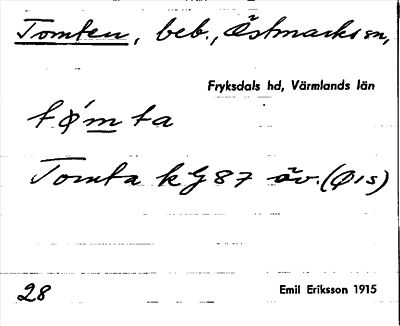 Tomten, beb., Östmarks sn,
Fryksdals hd, Värmlands län
tø´mta
Tomta kG87 öv. (Ö1s)
28
Emil Eriksson 1915